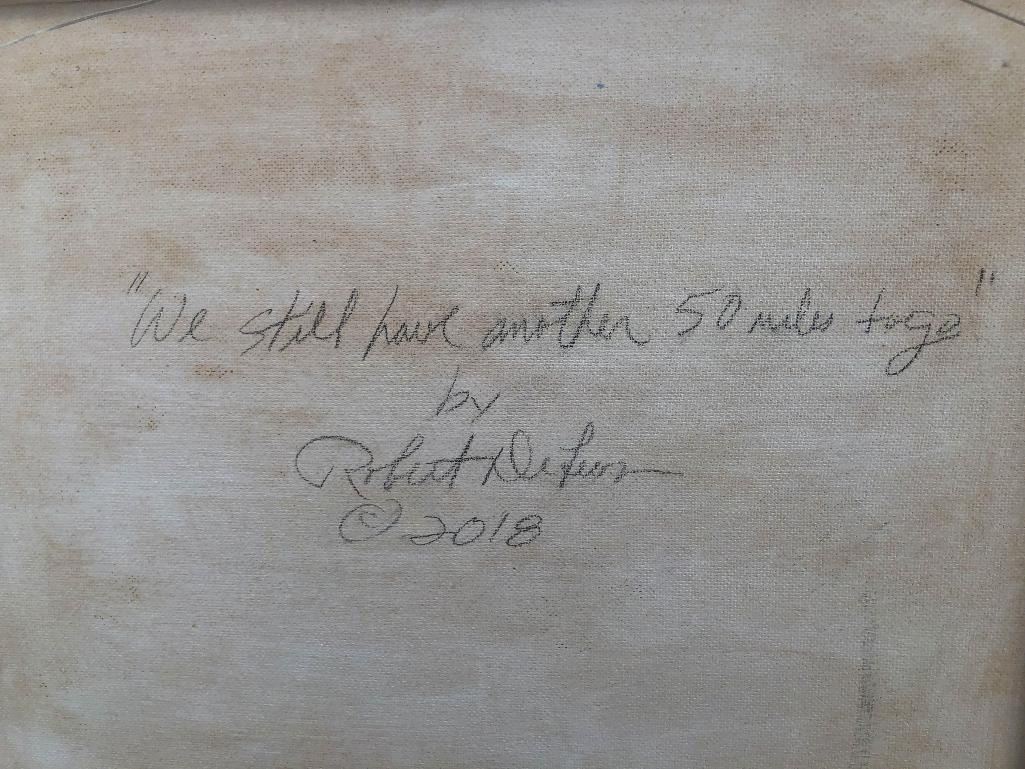 "We still have another 50 miles to go"
by
Robert DeLeon
© 2018